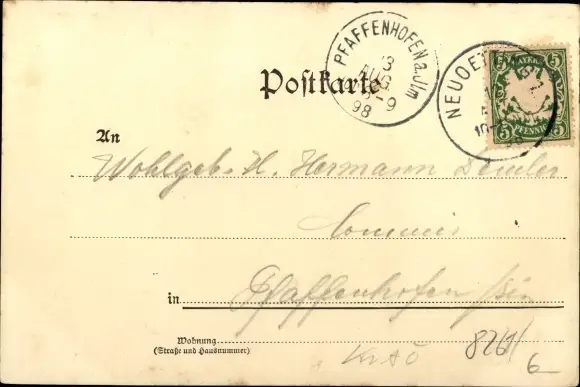 PFAFFENHOFEN a. Jlm
13
AUG.
8-9
98
NEUOETT
5 BAYERN 5
5 PFENNIG 5
Postkarte
An
Wohlgeb. H. Hermann
Commis
in Pfaffenhofen
Wohnung
(Straße und Hausnummer)
6